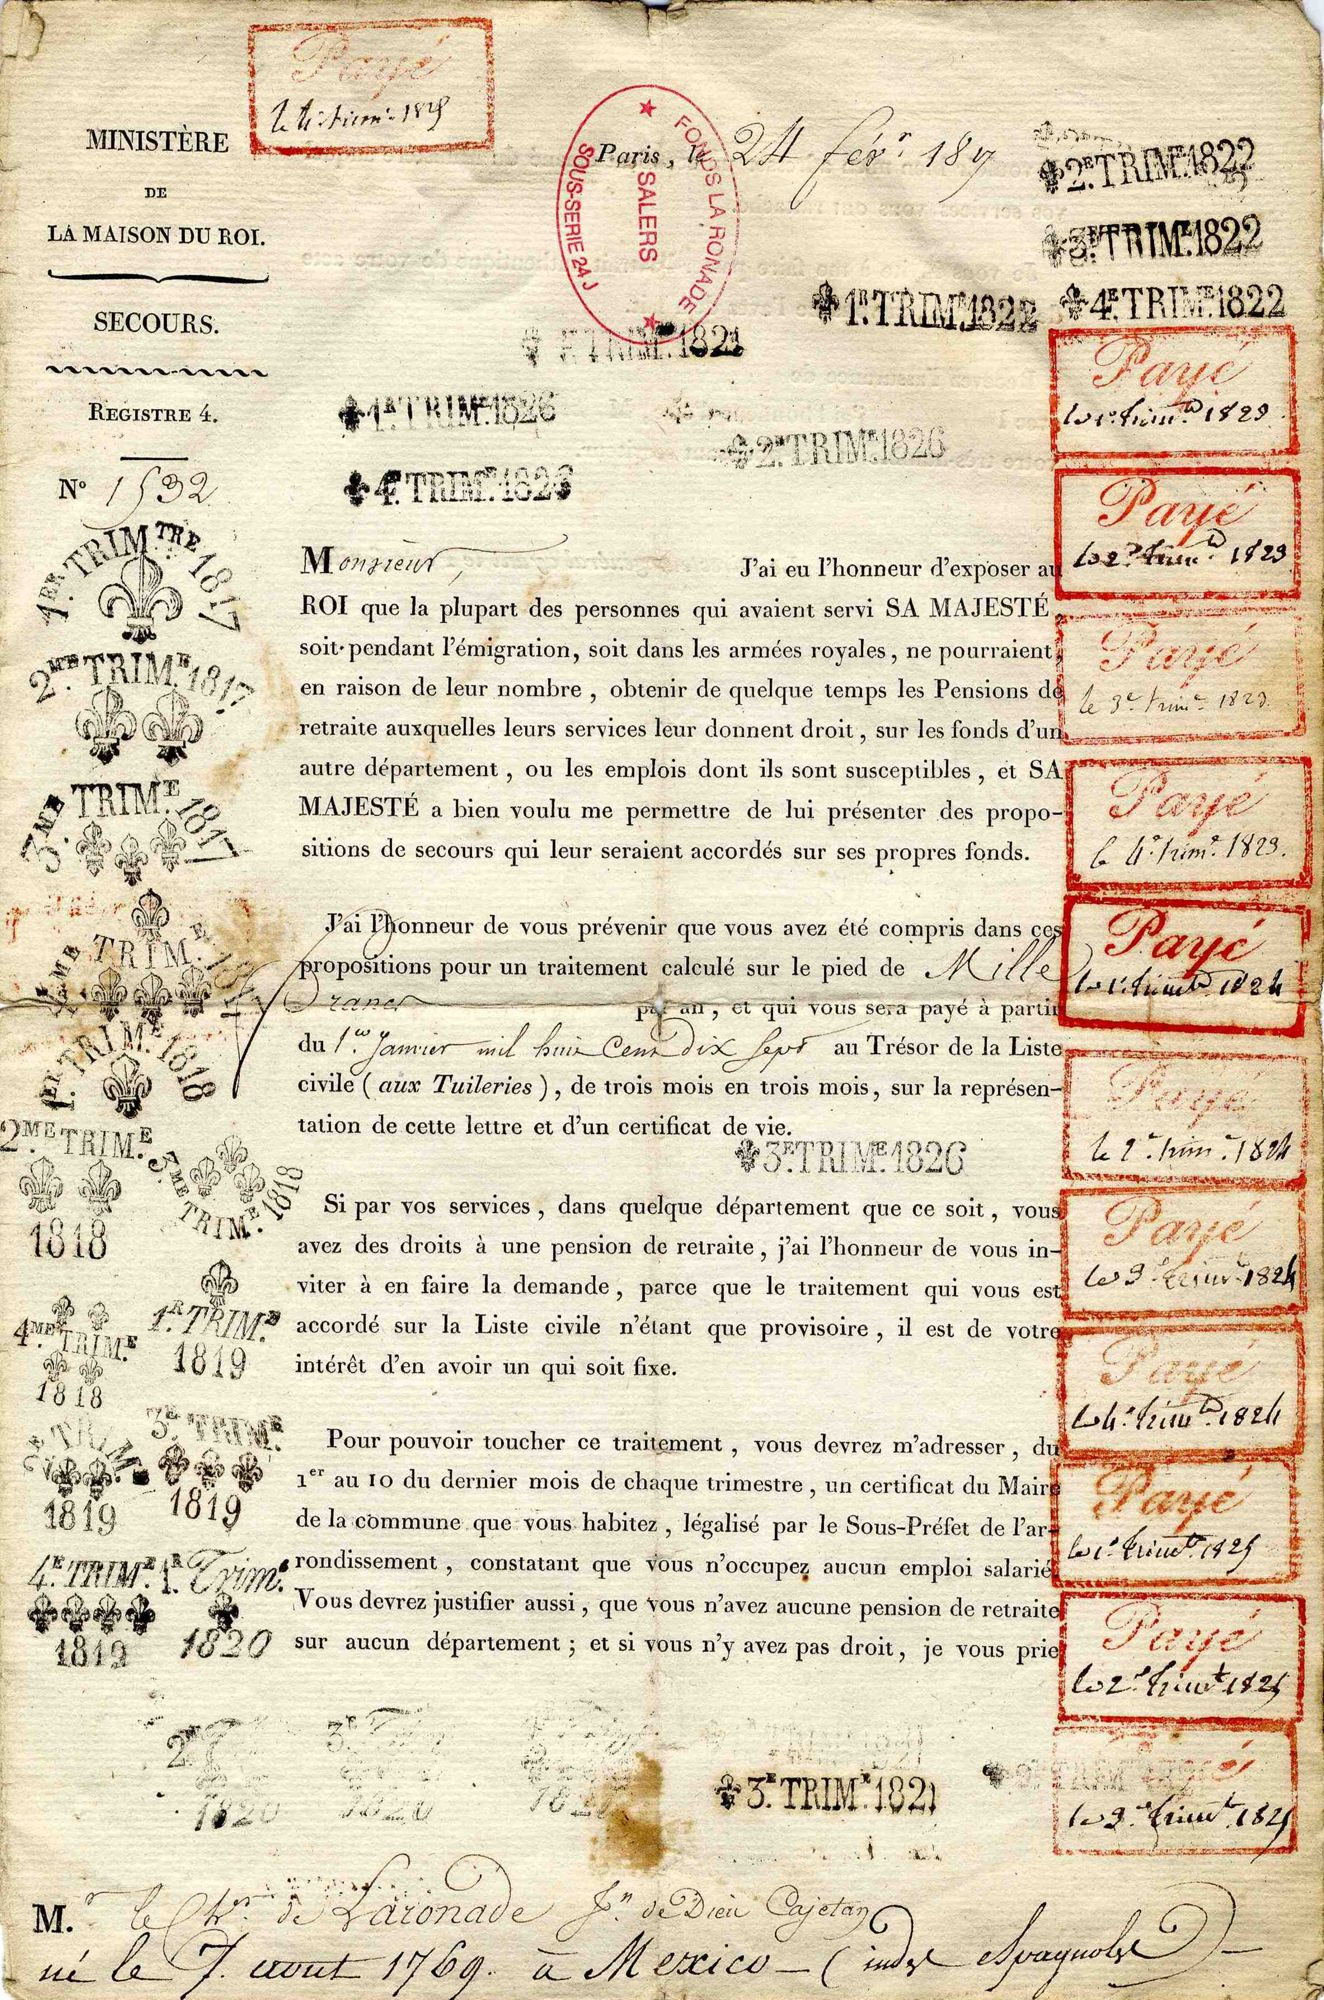 Payé
le 4e. trimre. 1825
MINISTÈRE
DE
LA MAISON DU ROI.
SECOURS.
REGISTRE 4.
N° 1532
Paris, le 24 févr. 18
FONDS LA RONADE
SALERS
SOUS-SERIE 24 J
2E. TRIM.E 1822
3E. TRIM.E 1822
1R. TRIM.E 1822
4E. TRIM.E 1822
TRIM.E 1821
1R. TRIM.E 1826
2E. TRIM.E 1826
4E. TRIM.E 1826
1ER. TRIM.TRE 1817
2ME. TRIM.E 1817
3ME. TRIM.E 1817
4EME TRIM.E 1817
1ER. TRIM.E 1818
2ME TRIM.E
1818
3ME TRIM.E 1818
4ME TRIM.E
1818
1R. TRIM.E
1819
2E TRIM.E
1819
3E TRIM.E
1819
4E. TRIM.E
1819
1R. Trim.e
1820
Monsieur, J'ai eu l'honneur d'exposer au
ROI que la plupart des personnes qui avaient servi SA MAJESTÉ,
soit pendant l'émigration, soit dans les armées royales, ne pourraient,
en raison de leur nombre, obtenir de quelque temps les Pensions de
retraite auxquelles leurs services leur donnent droit, sur les fonds d'un
autre département, ou les emplois dont ils sont susceptibles, et SA
MAJESTÉ a bien voulu me permettre de lui présenter des propo-
sitions de secours qui leur seraient accordés sur ses propres fonds.
J'ai l'honneur de vous prévenir que vous avez été compris dans ces
propositions pour un traitement calculé sur le pied de Mille
Francs par an, et qui vous sera payé à partir
du 1er. Janvier mil huit Cent Dix Sept au Trésor de la Liste
civile (aux Tuileries), de trois mois en trois mois, sur la représen-
tation de cette lettre et d'un certificat de vie.
3E. TRIM.E 1826
Si par vos services, dans quelque département que ce soit, vous
avez des droits à une pension de retraite, j'ai l'honneur de vous in-
viter à en faire la demande, parce que le traitement qui vous est
accordé sur la Liste civile n'étant que provisoire, il est de votre
intérêt d'en avoir un qui soit fixe.
Pour pouvoir toucher ce traitement, vous devrez m'adresser, du
1er au 10 du dernier mois de chaque trimestre, un certificat du Maire
de la commune que vous habitez, légalisé par le Sous-Préfet de l'ar-
rondissement, constatant que vous n'occupez aucun emploi salarié.
Vous devrez justifier aussi, que vous n'avez aucune pension de retraite
sur aucun département; et si vous n'y avez pas droit, je vous prie
Payé
le 1r. trimre. 1823
Payé
le 2e. trimre. 1823
Payé
le 3e. trimre. 1823.
Payé
le 4e. trimre. 1823.
Payé
le 1r. trimre. 1824
Payé
le 2e. trimre. 1824
Payé
le 3e. trimre. 1824
Payé
le 4e. trimre. 1824
Payé
le 1r. trimre. 1825
Payé
le 2e. trimre. 1825
le 3e. trimre. 1825
2E Trim
1820
3E Trim
1820
3E. TRIM.E 1821
M.r le Cher. de Laronade Jn. de Dieu Cajetan
né le 7. aout 1769. à Mexico — (indes Espagnoles) —